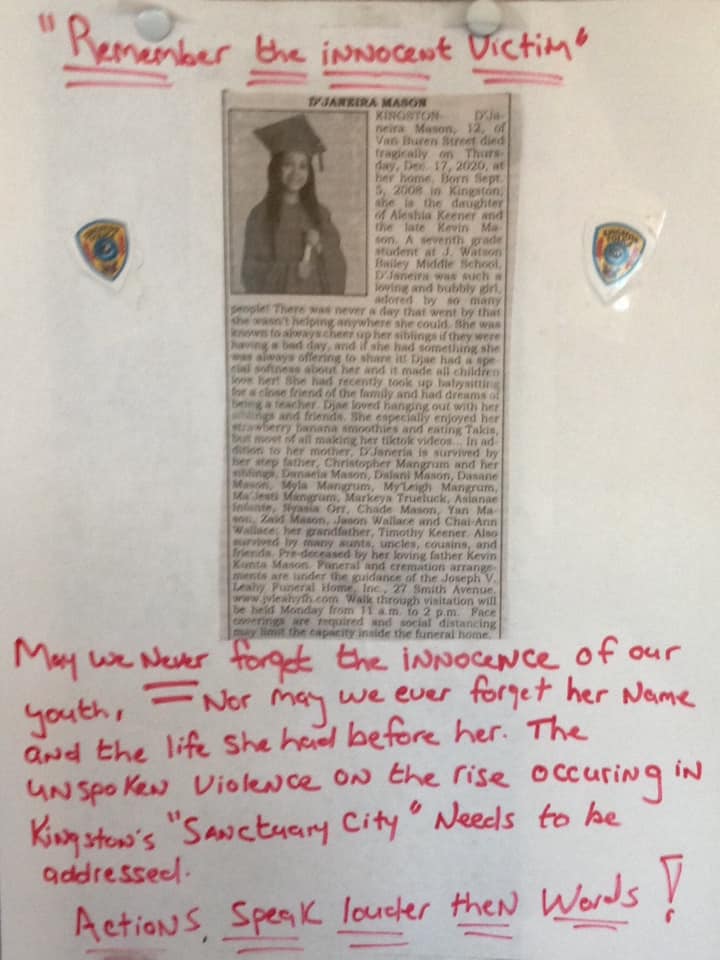 "Remember the innocent Victim"
D'JANEIRA MASON
KINGSTON- D'Ja-
neira Mason, 12, of
Van Buren Street died
tragically on Thurs-
day, Dec. 17, 2020, at
her home. Born Sept.
5, 2008 in Kingston;
she is the daughter
of Aleshia Keener and
the late Kevin Ma-
son. A seventh grade
student at J. Watson
Bailey Middle School,
D'Janeira was such a
loving and bubbly girl,
adored by so many
people! There was never a day that went by that
she wasn't helping anywhere she could. She was
known to always cheer up her siblings if they were
having a bad day, and if she had something she
was always offering to share it! Djae had a spe-
cial softness about her and it made all children
love her! She had recently took up babysitting
for a close friend of the family and had dreams of
being a teacher. Djae loved hanging out with her
siblings and friends. She especially enjoyed her
strawberry banana smoothies and eating Takis,
but most of all making her tiktok videos... In ad-
dition to her mother, D'Janeria is survived by
her step father, Christopher Mangrum and her
siblings, Danaela Mason, Dalani Mason, Dasane
Mason, Myla Mangrum, My'Leigh Mangrum,
Ma'Jesti Mangrum, Markeya Trueluck, Asianae
Infante, Nyasia Orr, Chade Mason, Yan Ma-
son, Zaid Mason, Jason Wallace and Chai-Ann
Wallace; her grandfather, Timothy Keener. Also
survived by many aunts, uncles, cousins, and
friends. Pre-deceased by her loving father Kevin
Kunta Mason. Funeral and cremation arrange-
ments are under the guidance of the Joseph V.
Leahy Funeral Home, Inc., 27 Smith Avenue.
www.jvleahyfh.com Walk through visitation will
be held Monday from 11 a.m. to 2 p.m. Face
coverings are required and social distancing
may limit the capacity inside the funeral home.
KINGSTON
POLICE
KINGSTON
POLICE
May we Never forget the innocence of our
youth, Nor may we ever forget her Name
and the life she had before her. The
unspoken Violence on the rise occuring in
Kingston's "Sanctuary City" Needs to be
addressed.
Actions, Speak louder then Words!